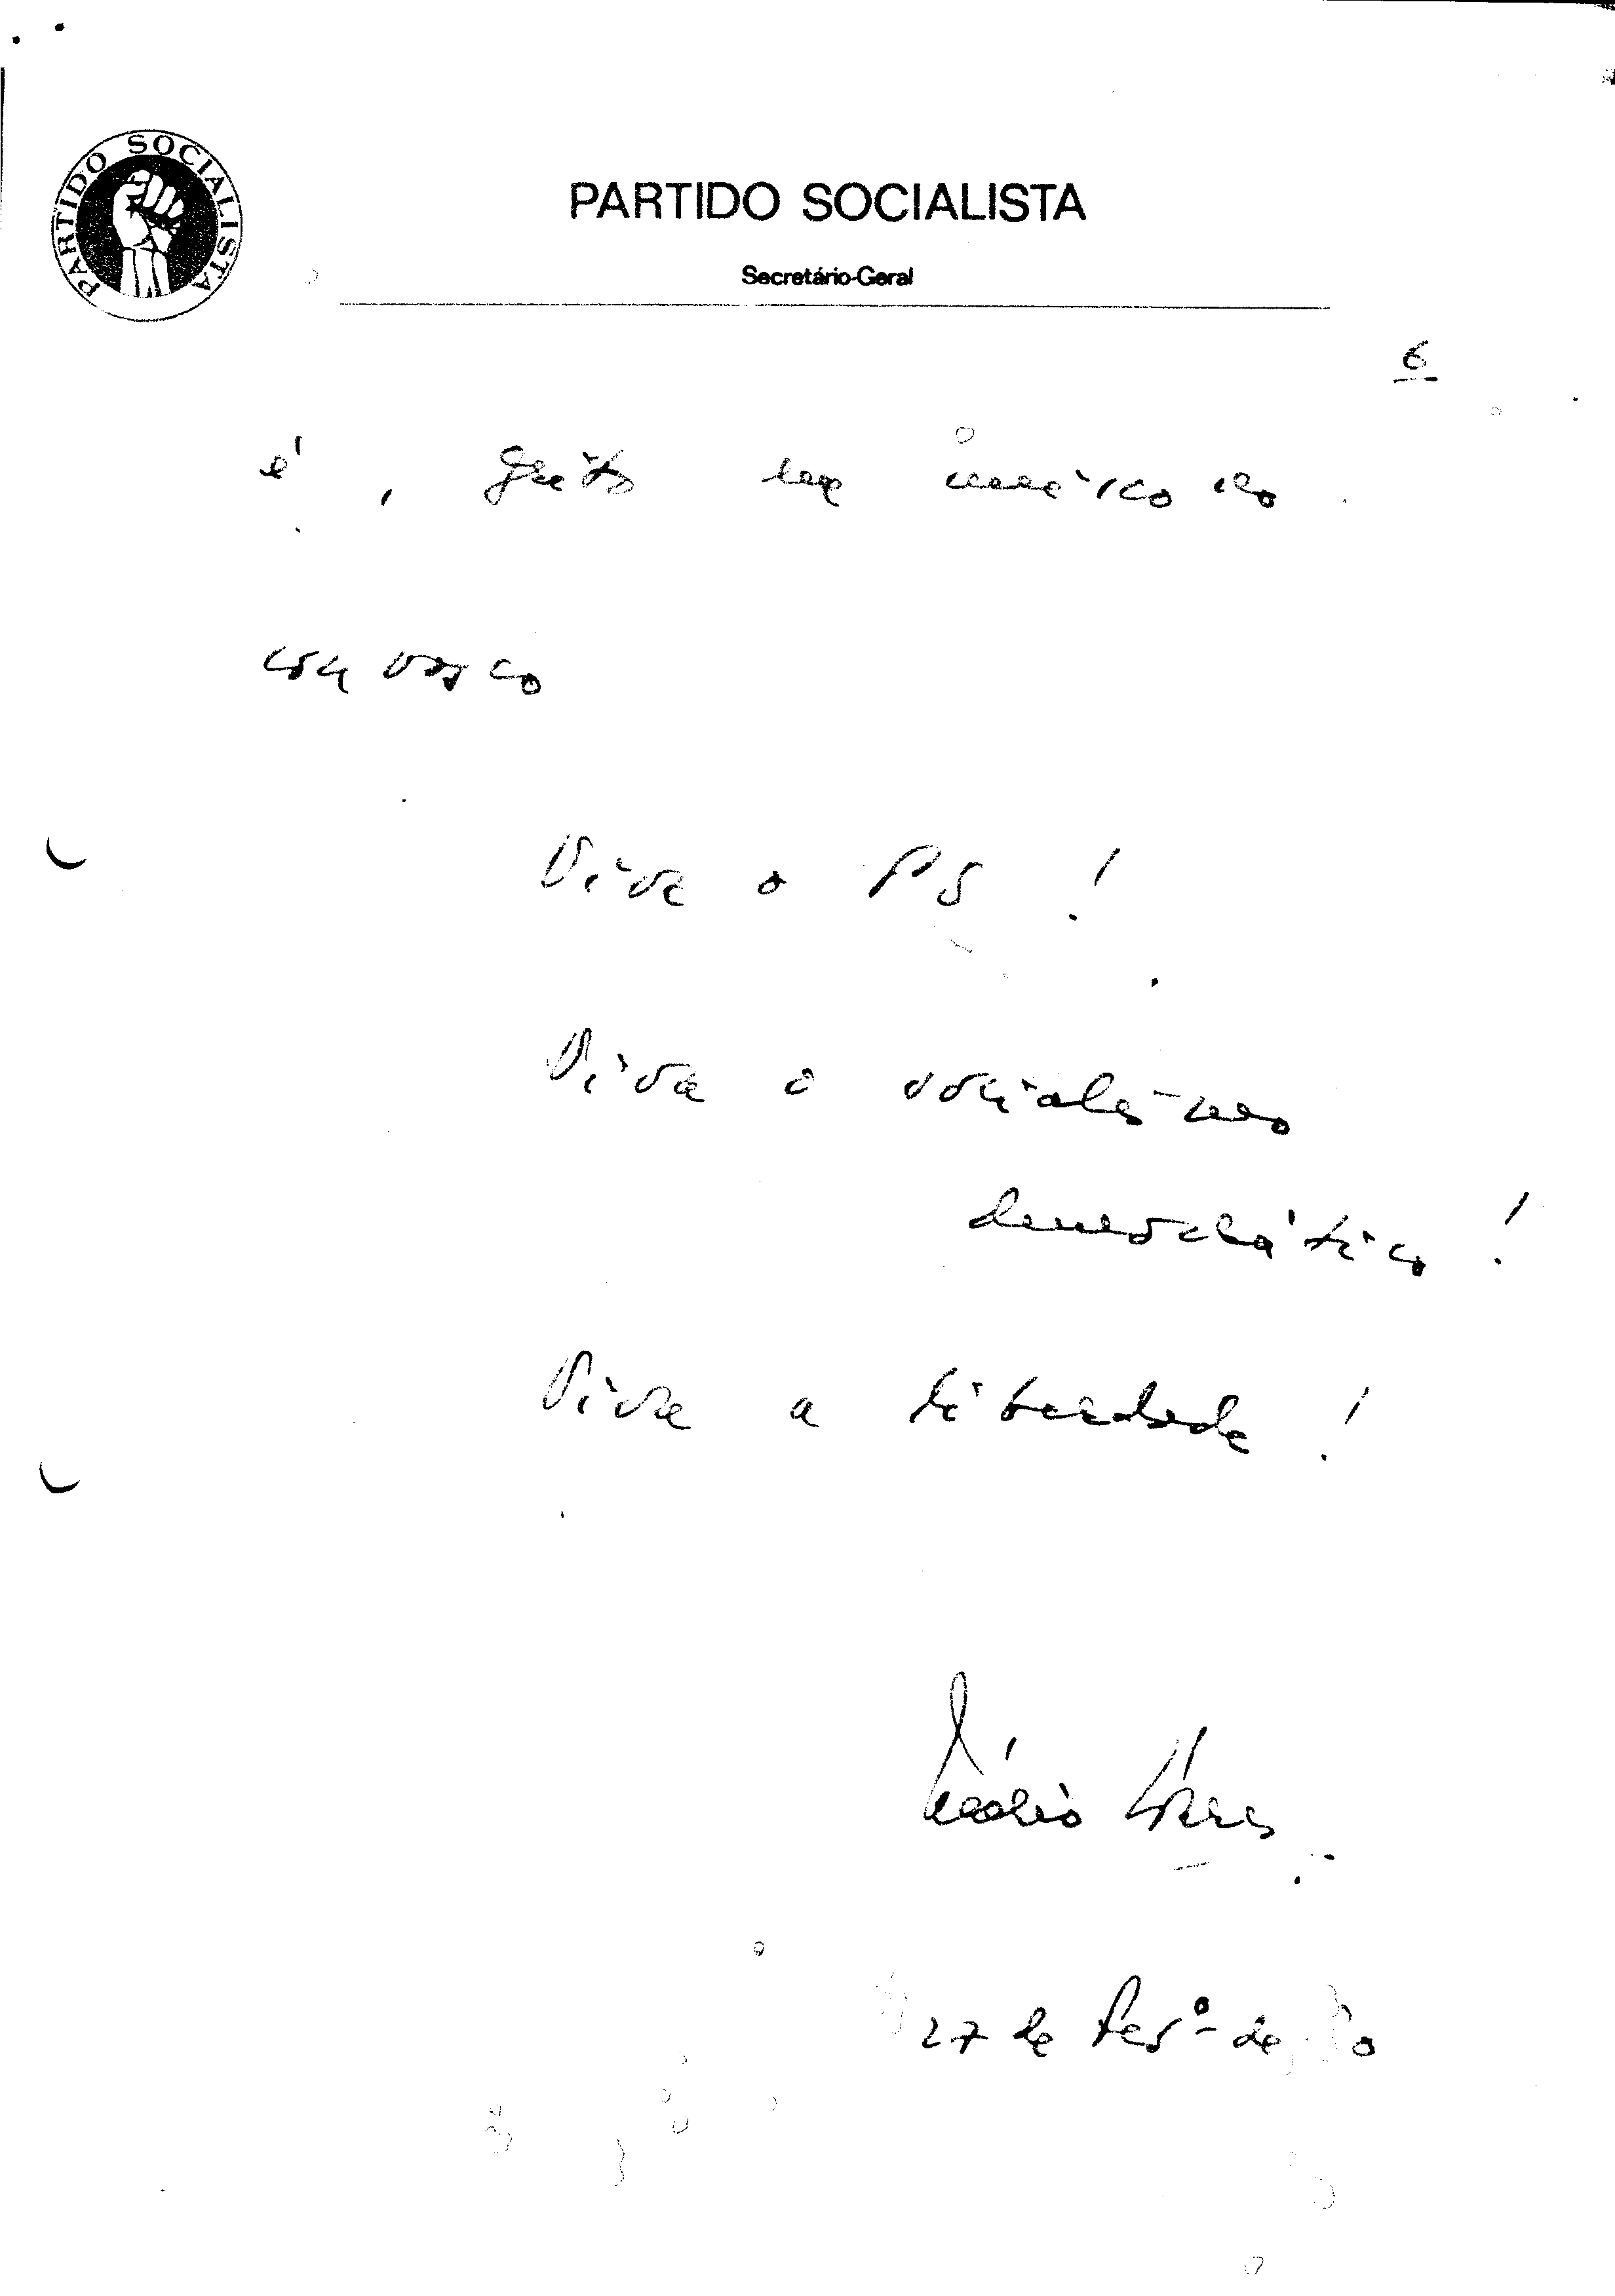 PARTIDO SOCIALISTA
PARTIDO SOCIALISTA
Secretário-Geral
6
é, grito em uníssono
convosco
Viva o PS!
Viva o socialismo
democrático!
Viva a liberdade!
Mário Soares
27 de Fevº de